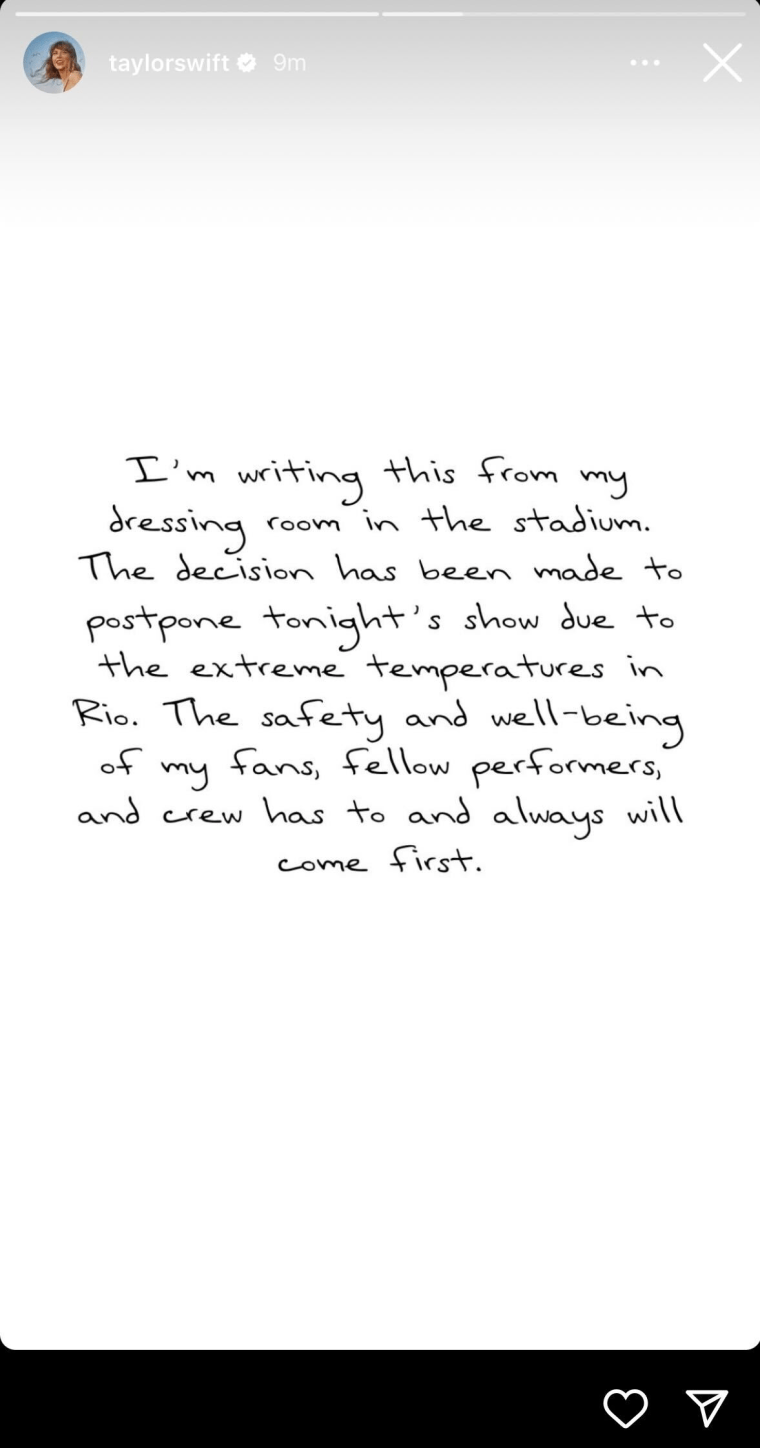 taylorswift 9m
I'm writing this from my
dressing room in the stadium.
The decision has been made to
postpone tonight's show due to
the extreme temperatures in
Rio. The safety and well-being
of my fans, fellow performers,
and crew has to and always will
come first.